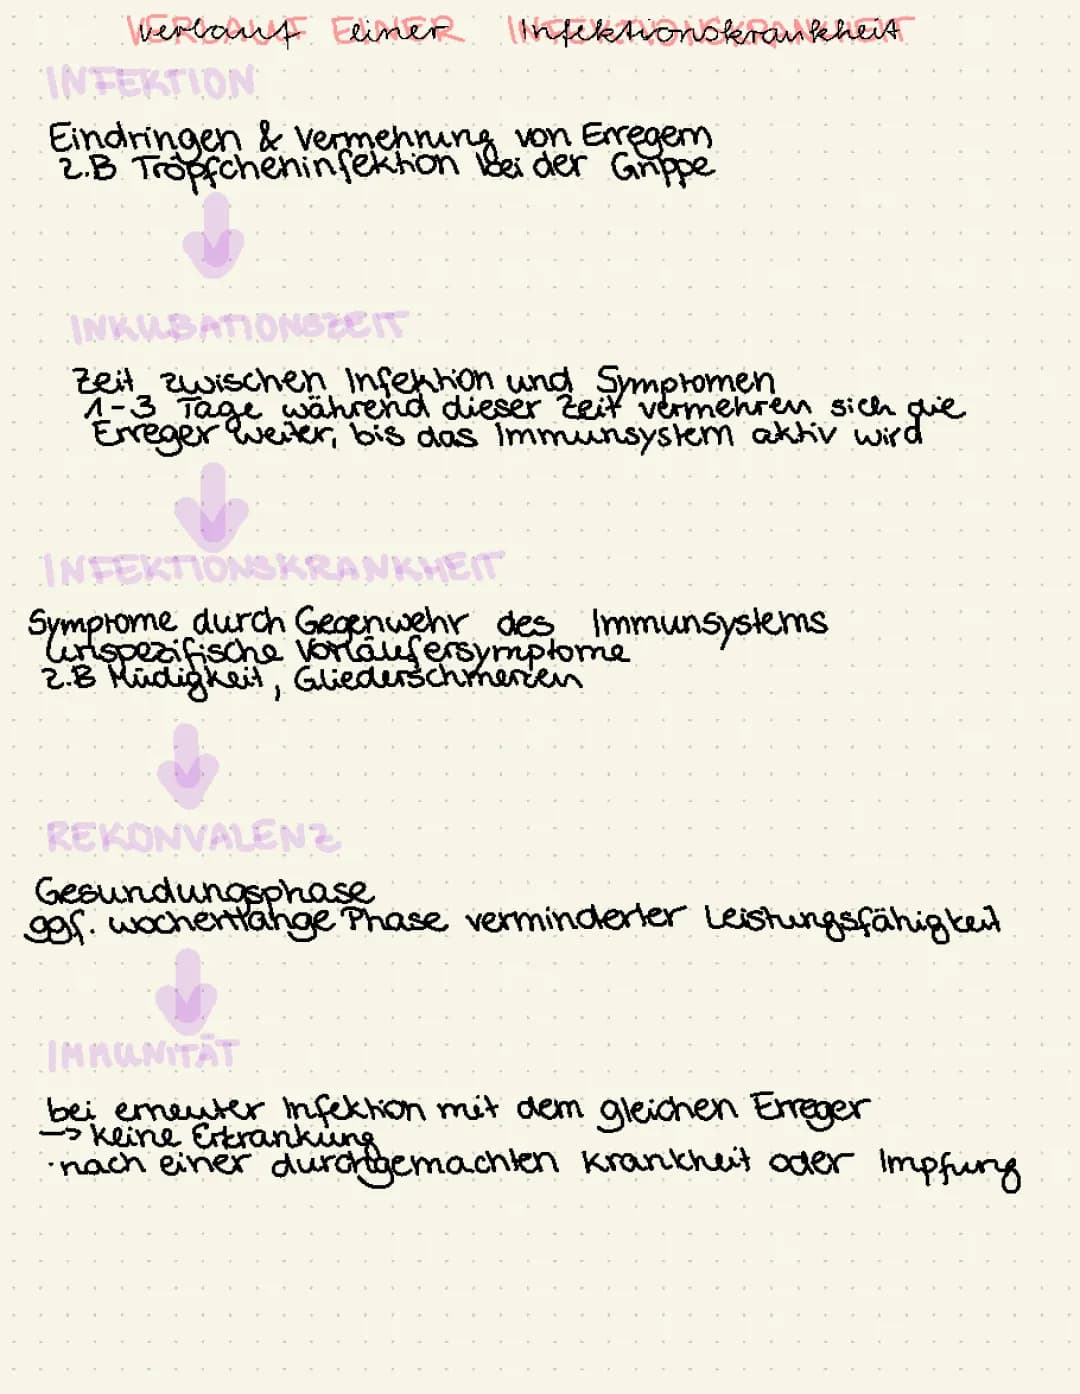 Verlauf Einer Infektionskrankheit
INFEKTION
Eindringen & Vermehrung von Erregern
z.B Tröpfcheninfektion bei der Grippe
INKUBATIONSZEIT
Zeit zwischen Infektion und Symptomen
1-3 Tage während dieser Zeit vermehren sich die
Erreger weiter, bis das Immunsystem aktiv wird
INFEKTIONSKRANKHEIT
Symptome durch Gegenwehr des Immunsystems
Unspezifische Vorläufersymptome
z.B Müdigkeit, Gliederschmerzen
REKONVALENZ
Gesundungsphase
ggf. wochenlange Phase verminderter Leistungsfähigkeit
IMMUNITÄT
bei erneuter Infektion mit dem gleichen Erreger
-> keine Erkrankung
·nach einer durchgemachten Krankheit oder Impfung